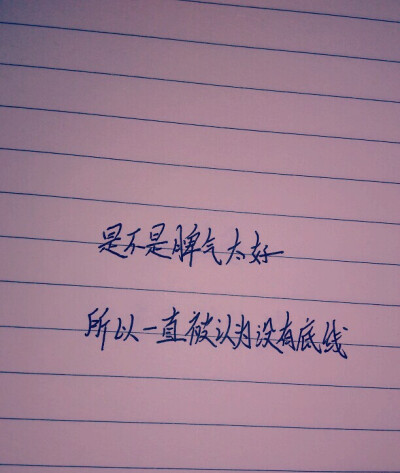 是不是脾气太好
所以一直被认为没有底线